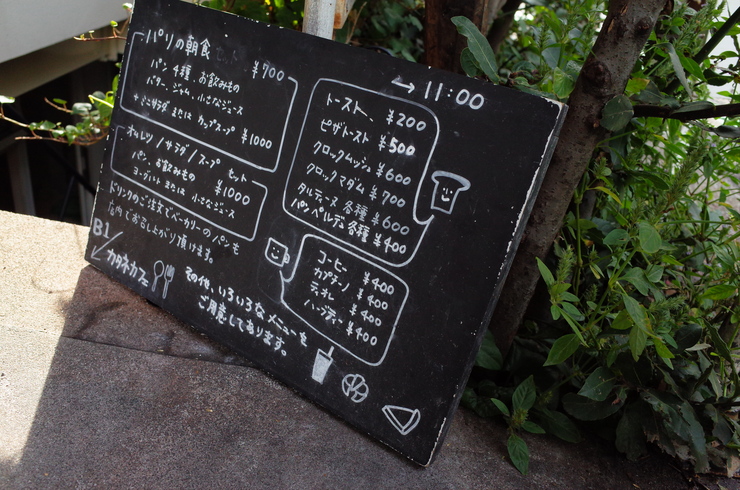 パリの朝食セット ¥700
パン4種、お飲みもの
バター、ジャム、小さなジュース
+ミニサラダ または カップスープ ¥1000
オムレツ/サラダ/スープ セット
パン、お飲みもの ¥1000
ヨーグルト または 小さなジュース
ドリンクのご注文でベーカリーのパンも
店内でお召し上がり頂けます。
B1
カタネカフェ
→ 11:00
トースト、 ¥200
ピザトースト ¥500
クロックムッシュ ¥600
クロックマダム ¥700
タルティーヌ 各種 ¥600
パンペルデュ 各種 ¥400
コーヒー ¥400
カプチーノ ¥400
ティオレ ¥400
ハーブティー ¥400
その他、いろいろなメニューを
ご用意してあります。